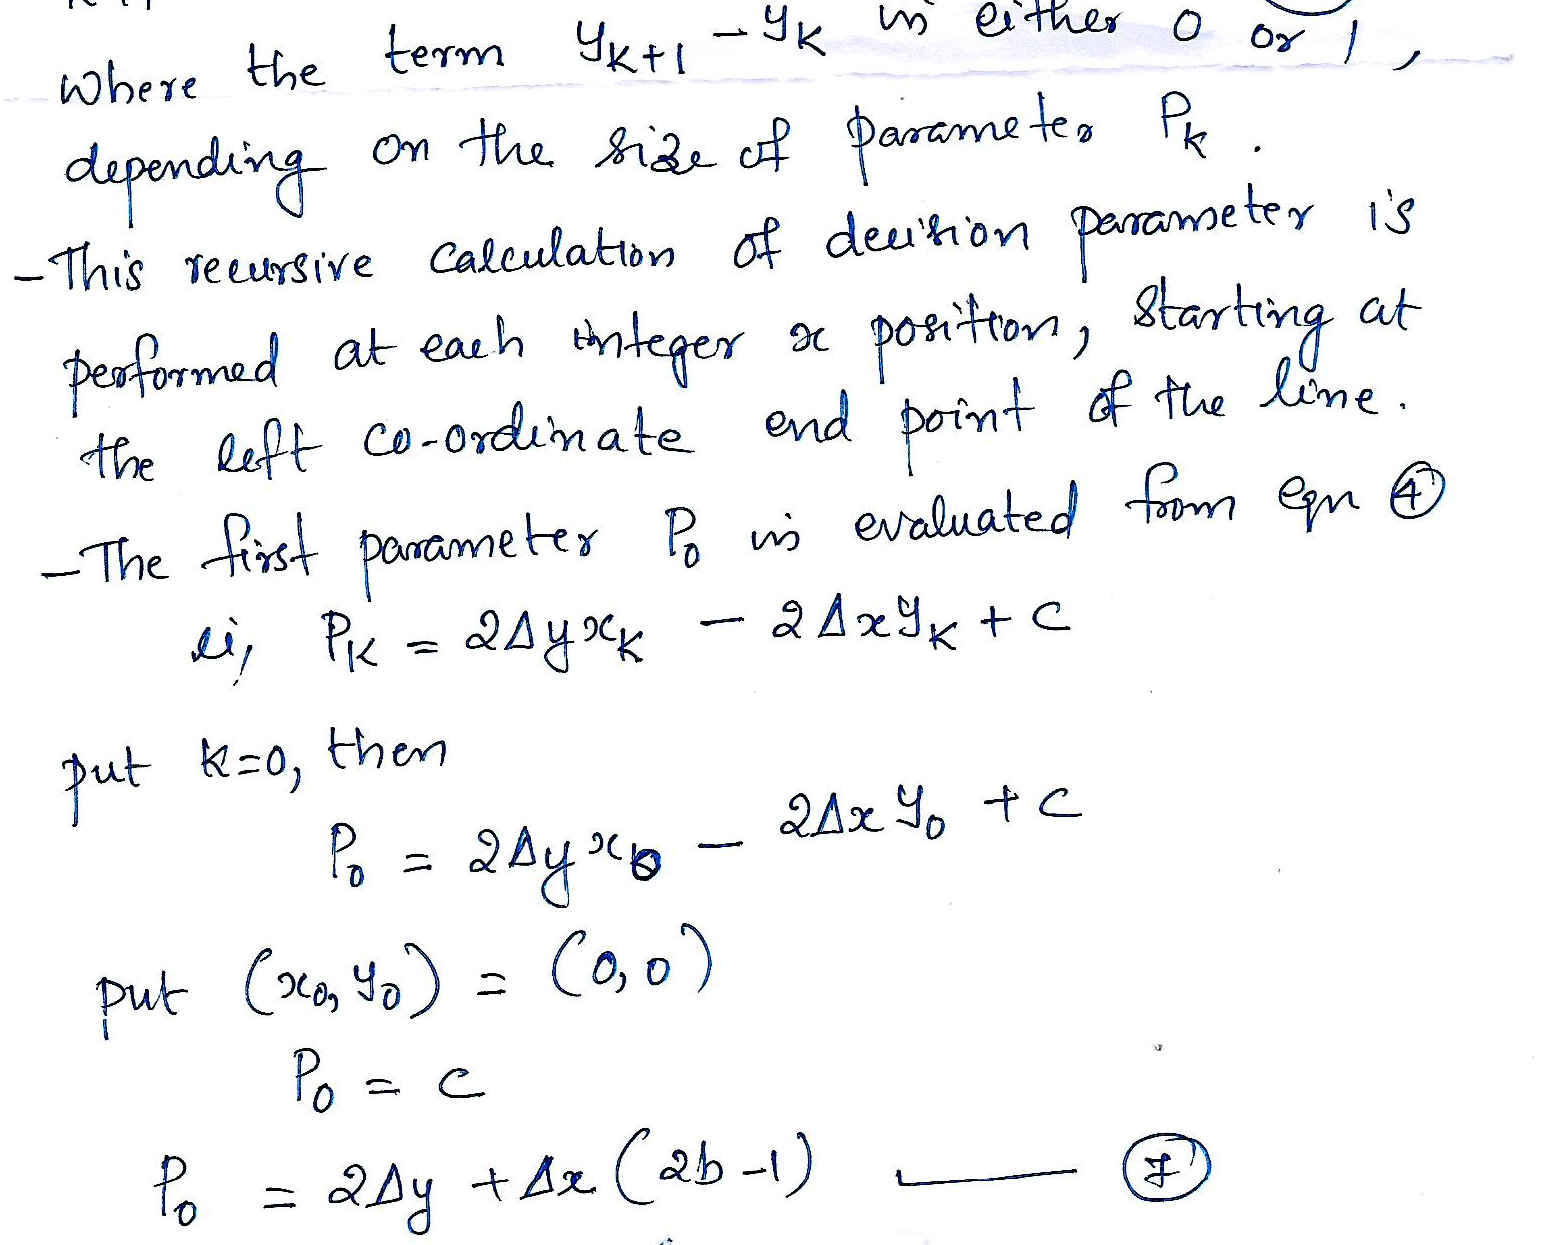 where the term yₖ₊₁ - yₖ is either 0 or 1,
depending on the size of parameter Pₖ.
- This recursive calculation of decision parameter is
performed at each integer x position, starting at
the left co-ordinate end point of the line.
- The first parameter P₀ is evaluated from eqn ④
ie, Pₖ = 2Δyxₖ - 2Δxyₖ + c
put k=0, then
P₀ = 2Δyx₀ - 2Δxy₀ + c
put (x₀, y₀) = (0,0)
P₀ = c
P₀ = 2Δy + Δx(2b-1) —— ⑦